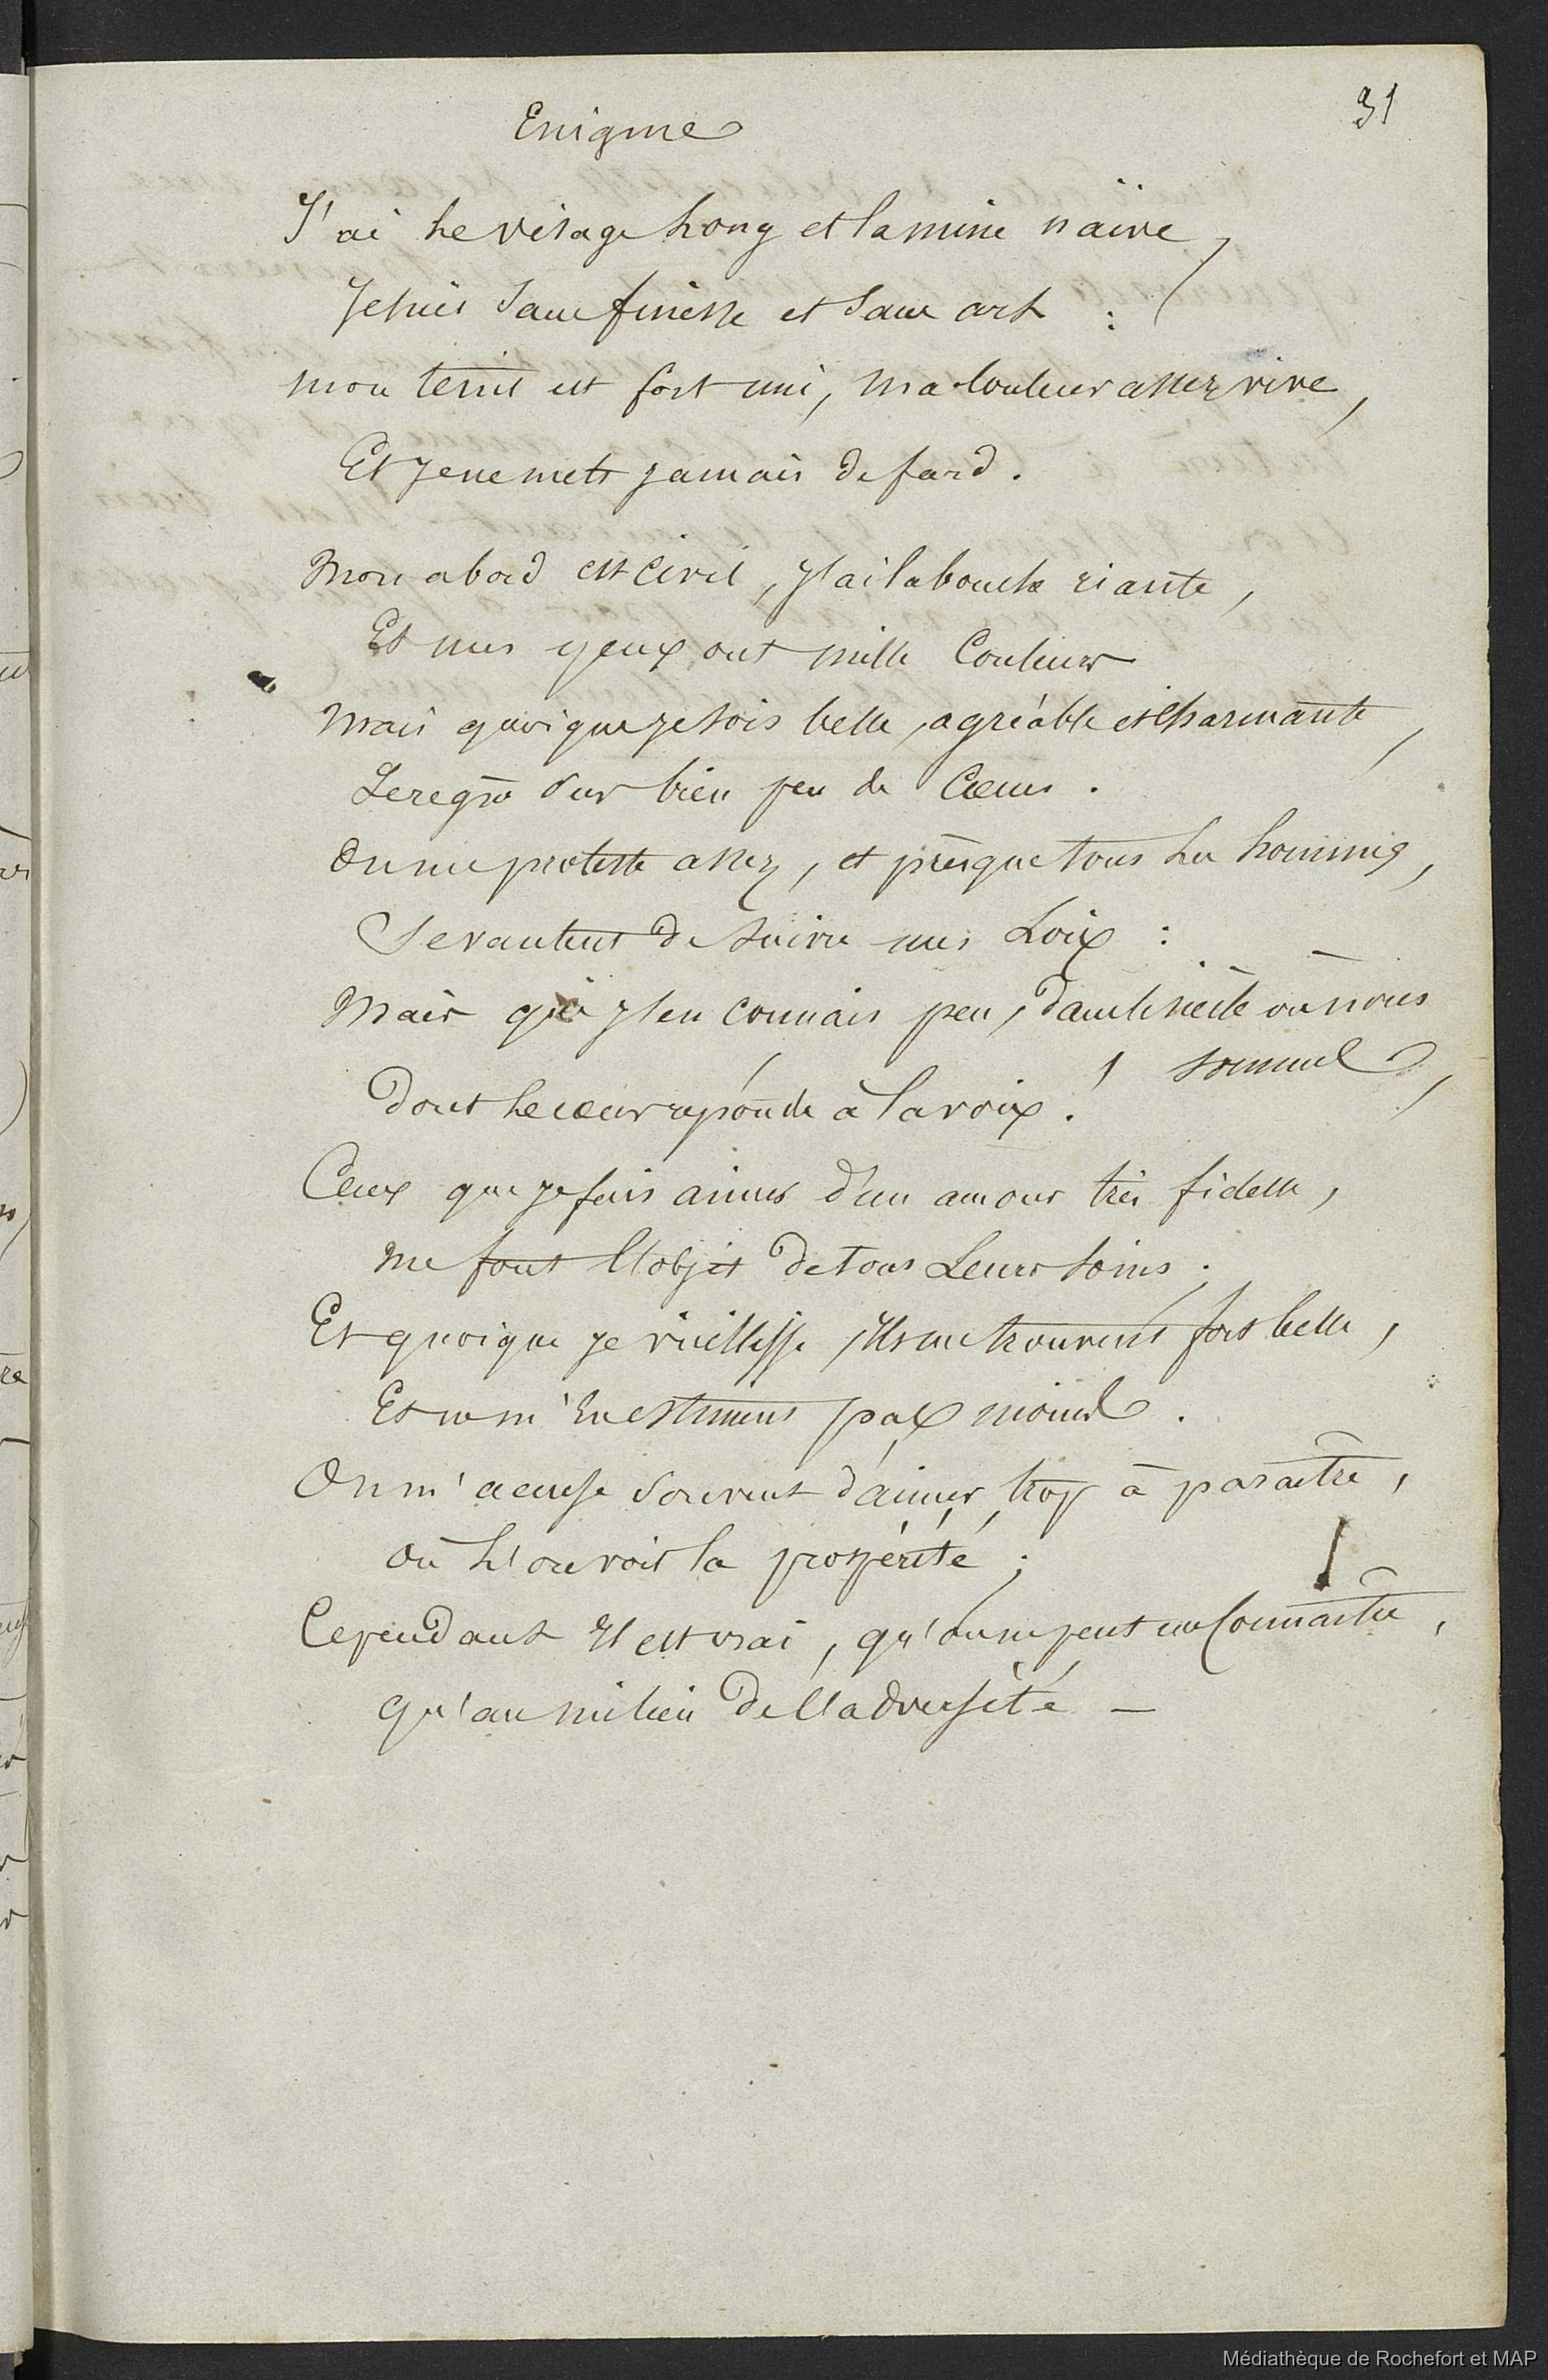 31
Enigme
J'ai le visage long et la mine näive,
Je suis sans finesse et sans art :
mon teint est fort uni, ma couleur assez vive,
Et je ne mets jamais de fard.
Mon abord est civil, j'ai la bouche riante,
Et mes yeux ont mille couleurs
Mais quoique je sois belle, agréable et charmante,
Je regne sur bien peu de Cœurs.
On me proteste assez, et presque tous les hommes,
Se vantent de suivre mes Loix :
Mais que j'en connais peu, dans le siècle où nous
sommes,
Dont le cœur réponde à la voix !
Ceux que je fais aimer d'un amour très fidelle,
me font l'objet de tous Leurs soins ;
Et quoique je vieillisse, ils me trouvent fort belle,
Et ne m'en estiment pas moins.
On m'accuse souvent d'aimer trop à paraître,
où l'on voit la prospérité ;
Cependant il est vrai, qu'on ne peut me Connaître,
qu'au milieu de l'adversité —
Médiathèque de Rochefort et MAP